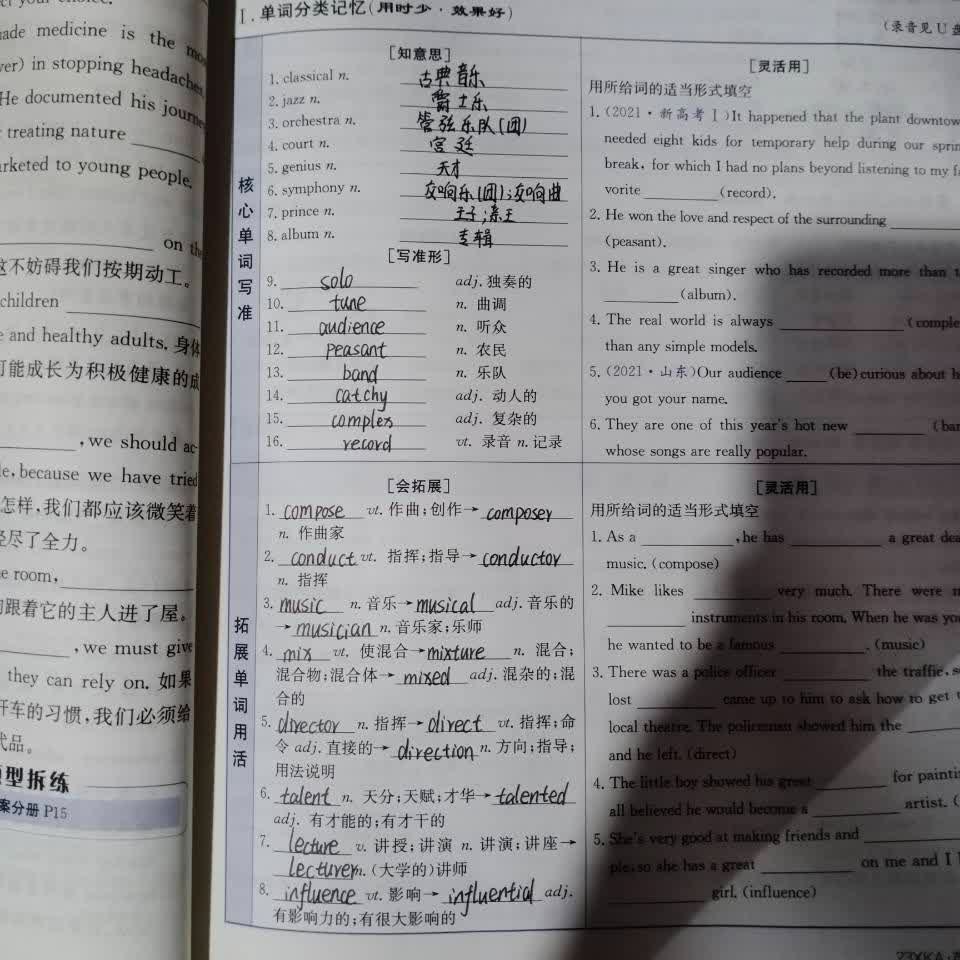 ur choice.
made medicine is the mo
ver) in stopping headaches
He documented his journe
treating nature
arketed to young people.
on th
这不妨碍我们按期动工。
children
e and healthy adults. 身体
可能成长为积极健康的成
, we should ac-
le, because we have tried
怎样,我们都应该微笑着
尽了全力。
e room,
跟着它的主人进了屋。
, we must give
they can rely on. 如果
开车的习惯,我们必须给
代品。
型拆练
案分册 P15
Ⅰ. 单词分类记忆(用时少·效果好)
(录音见 U 盘
核心单词写准
[知意思]
1. classical n. 古典音乐
2. jazz n. 爵士乐
3. orchestra n. 管弦乐队(团)
4. court n. 宫廷
5. genius n. 天才
6. symphony n. 交响乐(团);交响曲
7. prince n. 王子;亲王
8. album n. 专辑
[写准形]
9. solo adj. 独奏的
10. tune n. 曲调
11. audience n. 听众
12. peasant n. 农民
13. band n. 乐队
14. catchy adj. 动人的
15. complex adj. 复杂的
16. record vt. 录音 n. 记录
[灵活用]
用所给词的适当形式填空
1. (2021·新高考Ⅰ)It happened that the plant downtow
needed eight kids for temporary help during our sprin
break, for which I had no plans beyond listening to my fa
vorite ________ (record).
2. He won the love and respect of the surrounding ________
(peasant).
3. He is a great singer who has recorded more than t
________ (album).
4. The real world is always ________ (comple
than any simple models.
5. (2021·山东)Our audience ____ (be)curious about h
you got your name.
6. They are one of this year's hot new ________ (ban
whose songs are really popular.
拓展单词用活
[会拓展]
1. compose vt. 作曲;创作→ composer
n. 作曲家
2. conduct vt. 指挥;指导→ conductor
n. 指挥
3. music n. 音乐→ musical adj. 音乐的
→ musician n. 音乐家;乐师
4. mix vt. 使混合→ mixture n. 混合;
混合物;混合体→ mixed adj. 混杂的;混
合的
5. director n. 指挥→ direct vt. 指挥;命
令 adj. 直接的→ direction n. 方向;指导;
用法说明
6. talent n. 天分;天赋;才华→ talented
adj. 有才能的;有才干的
7. lecture v. 讲授;讲演 n. 讲演;讲座→
lecturer n. (大学的)讲师
8. influence vt. 影响→ influential adj.
有影响力的;有很大影响的
[灵活用]
用所给词的适当形式填空
1. As a ________, he has ________ a great dea
music. (compose)
2. Mike likes ________ very much. There were m
________ instruments in his room. When he was you
he wanted to be a famous ________. (music)
3. There was a police officer ________ the traffic, s
lost ________ came up to him to ask how to get t
local theatre. The policeman showed him the ________
and he left. (direct)
4. The little boy showed his great ________ for painti
all believed he would become a ________ artist. (
5. She's very good at making friends and ________
ple, so she has a great ________ on me and I
________ girl. (influence)